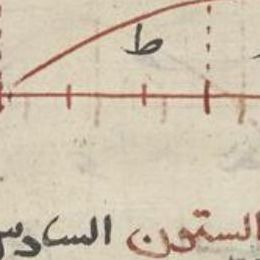 ط
الستون السادس